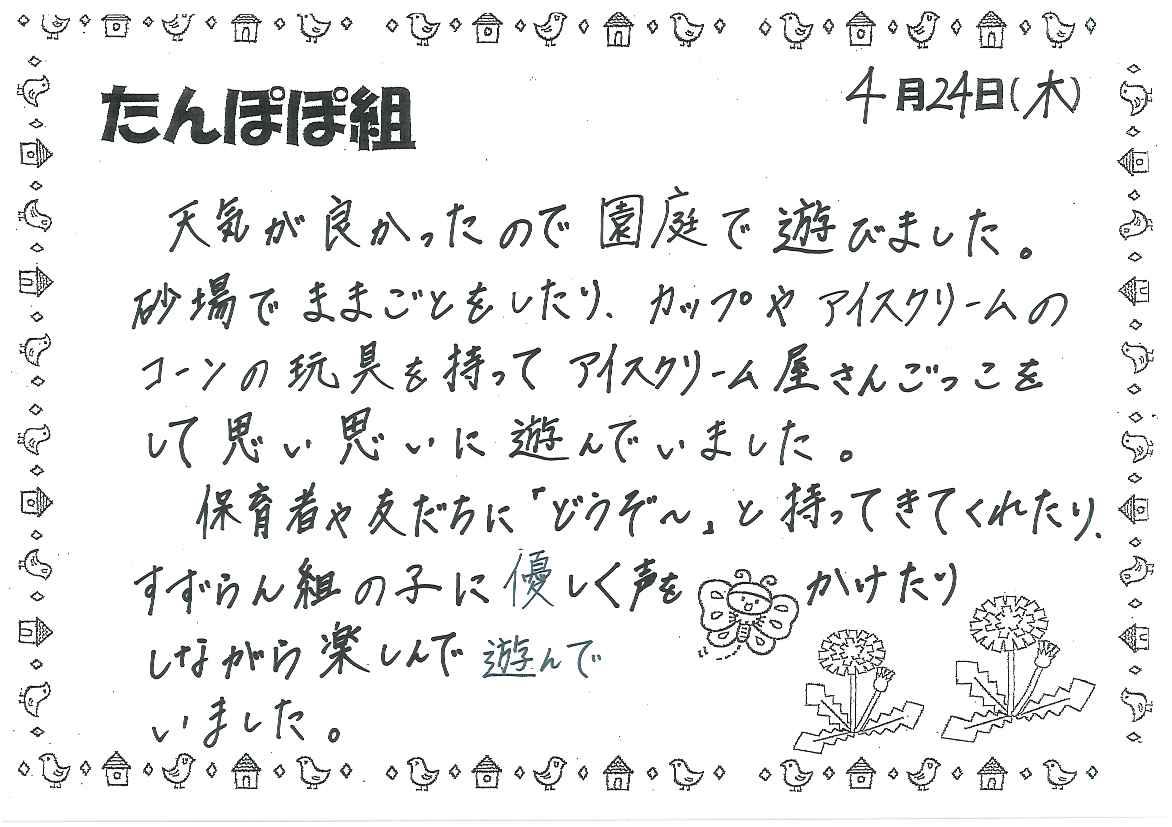 たんぽぽ組
4月24日(木)
天気が良かったので園庭で遊びました。
砂場でままごとをしたり、カップやアイスクリームの
コーンの玩具を持ってアイスクリーム屋さんごっこを
して思い思いに遊んでいました。
保育者や友だちに「どうぞ～」と持ってきてくれたり、
すずらん組の子に優しく声をかけたり
しながら楽しんで遊んで
いました。